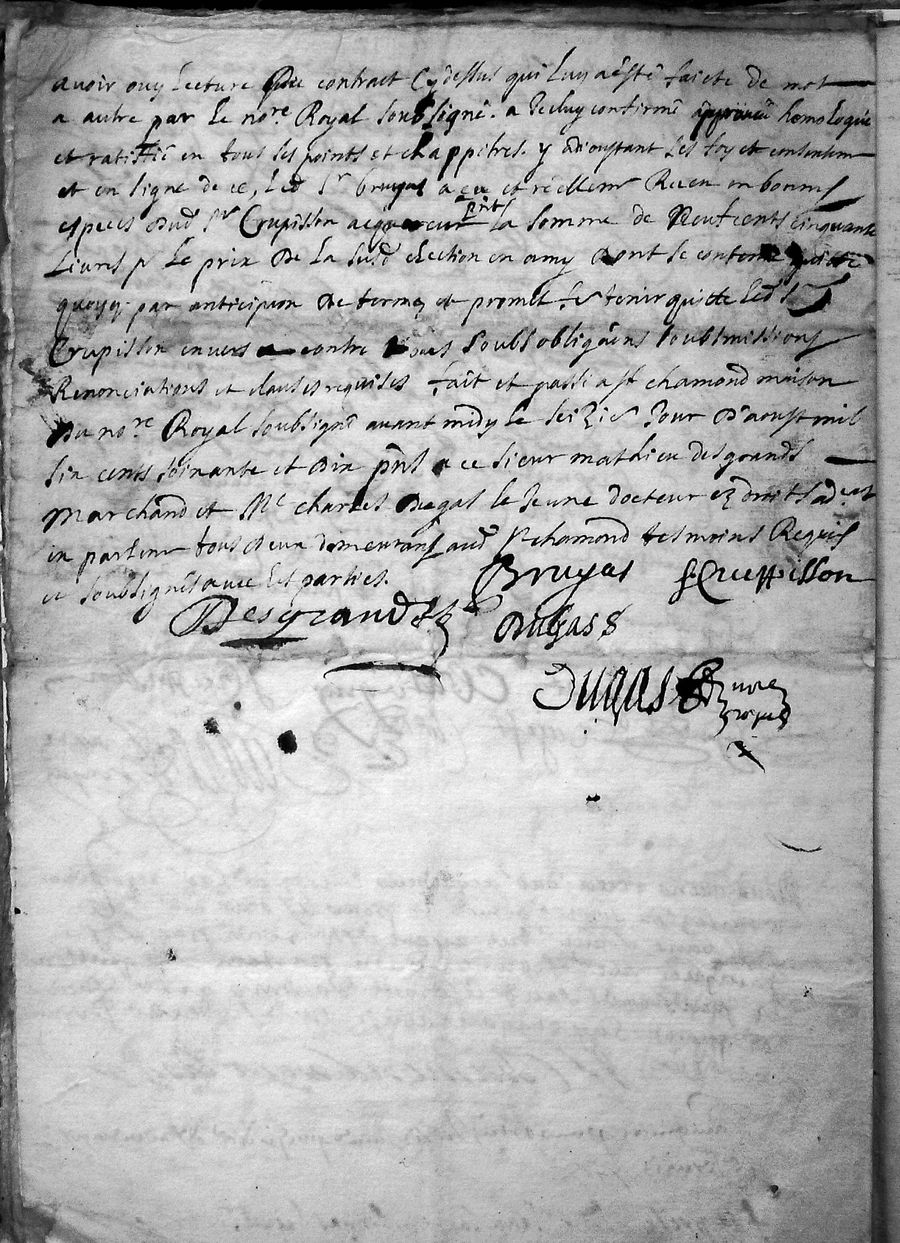 avoir ouy Lecture Du contract Cy dessus qui Luy a esté faicte de mot
a autre par Le nore Royal soubsigné. a Icelluy confirmé approuvé homologué
et ratiffié en tous ses points et chappitres. y adioustant ses foy et consentem
et en signe de ce, Led Sr bruyas a eu et réellemt Receu en bonnes
especes Dud Sr Crupisson acquereur pnt La somme de Neuf cents cinquante
Livres pr Le prix De La susd eslection en amy Dont se contente quitte
quoyq par anticipaon De termes et promet Le tenir quitte Led Sr
Crupisson envers et contre tous soubs obligaons soubsmissions
Renonciations et clauses requises fait et passé a St chamond maison
Du nore Royal soubsigné avant midy le seizie Jour D'aoust mil
six cents soixante et dix pnts a ce sieur mathieu desgrands
Marchand et Me charles Dugas le Jeune docteur ez droits advat
en parlemt tous Deux demeurans aud St chamond tesmoins Requis
et soubsignés avec Les parties.
Bruyas Crupisson
Desgrands Dugas
Dugas nore
royal